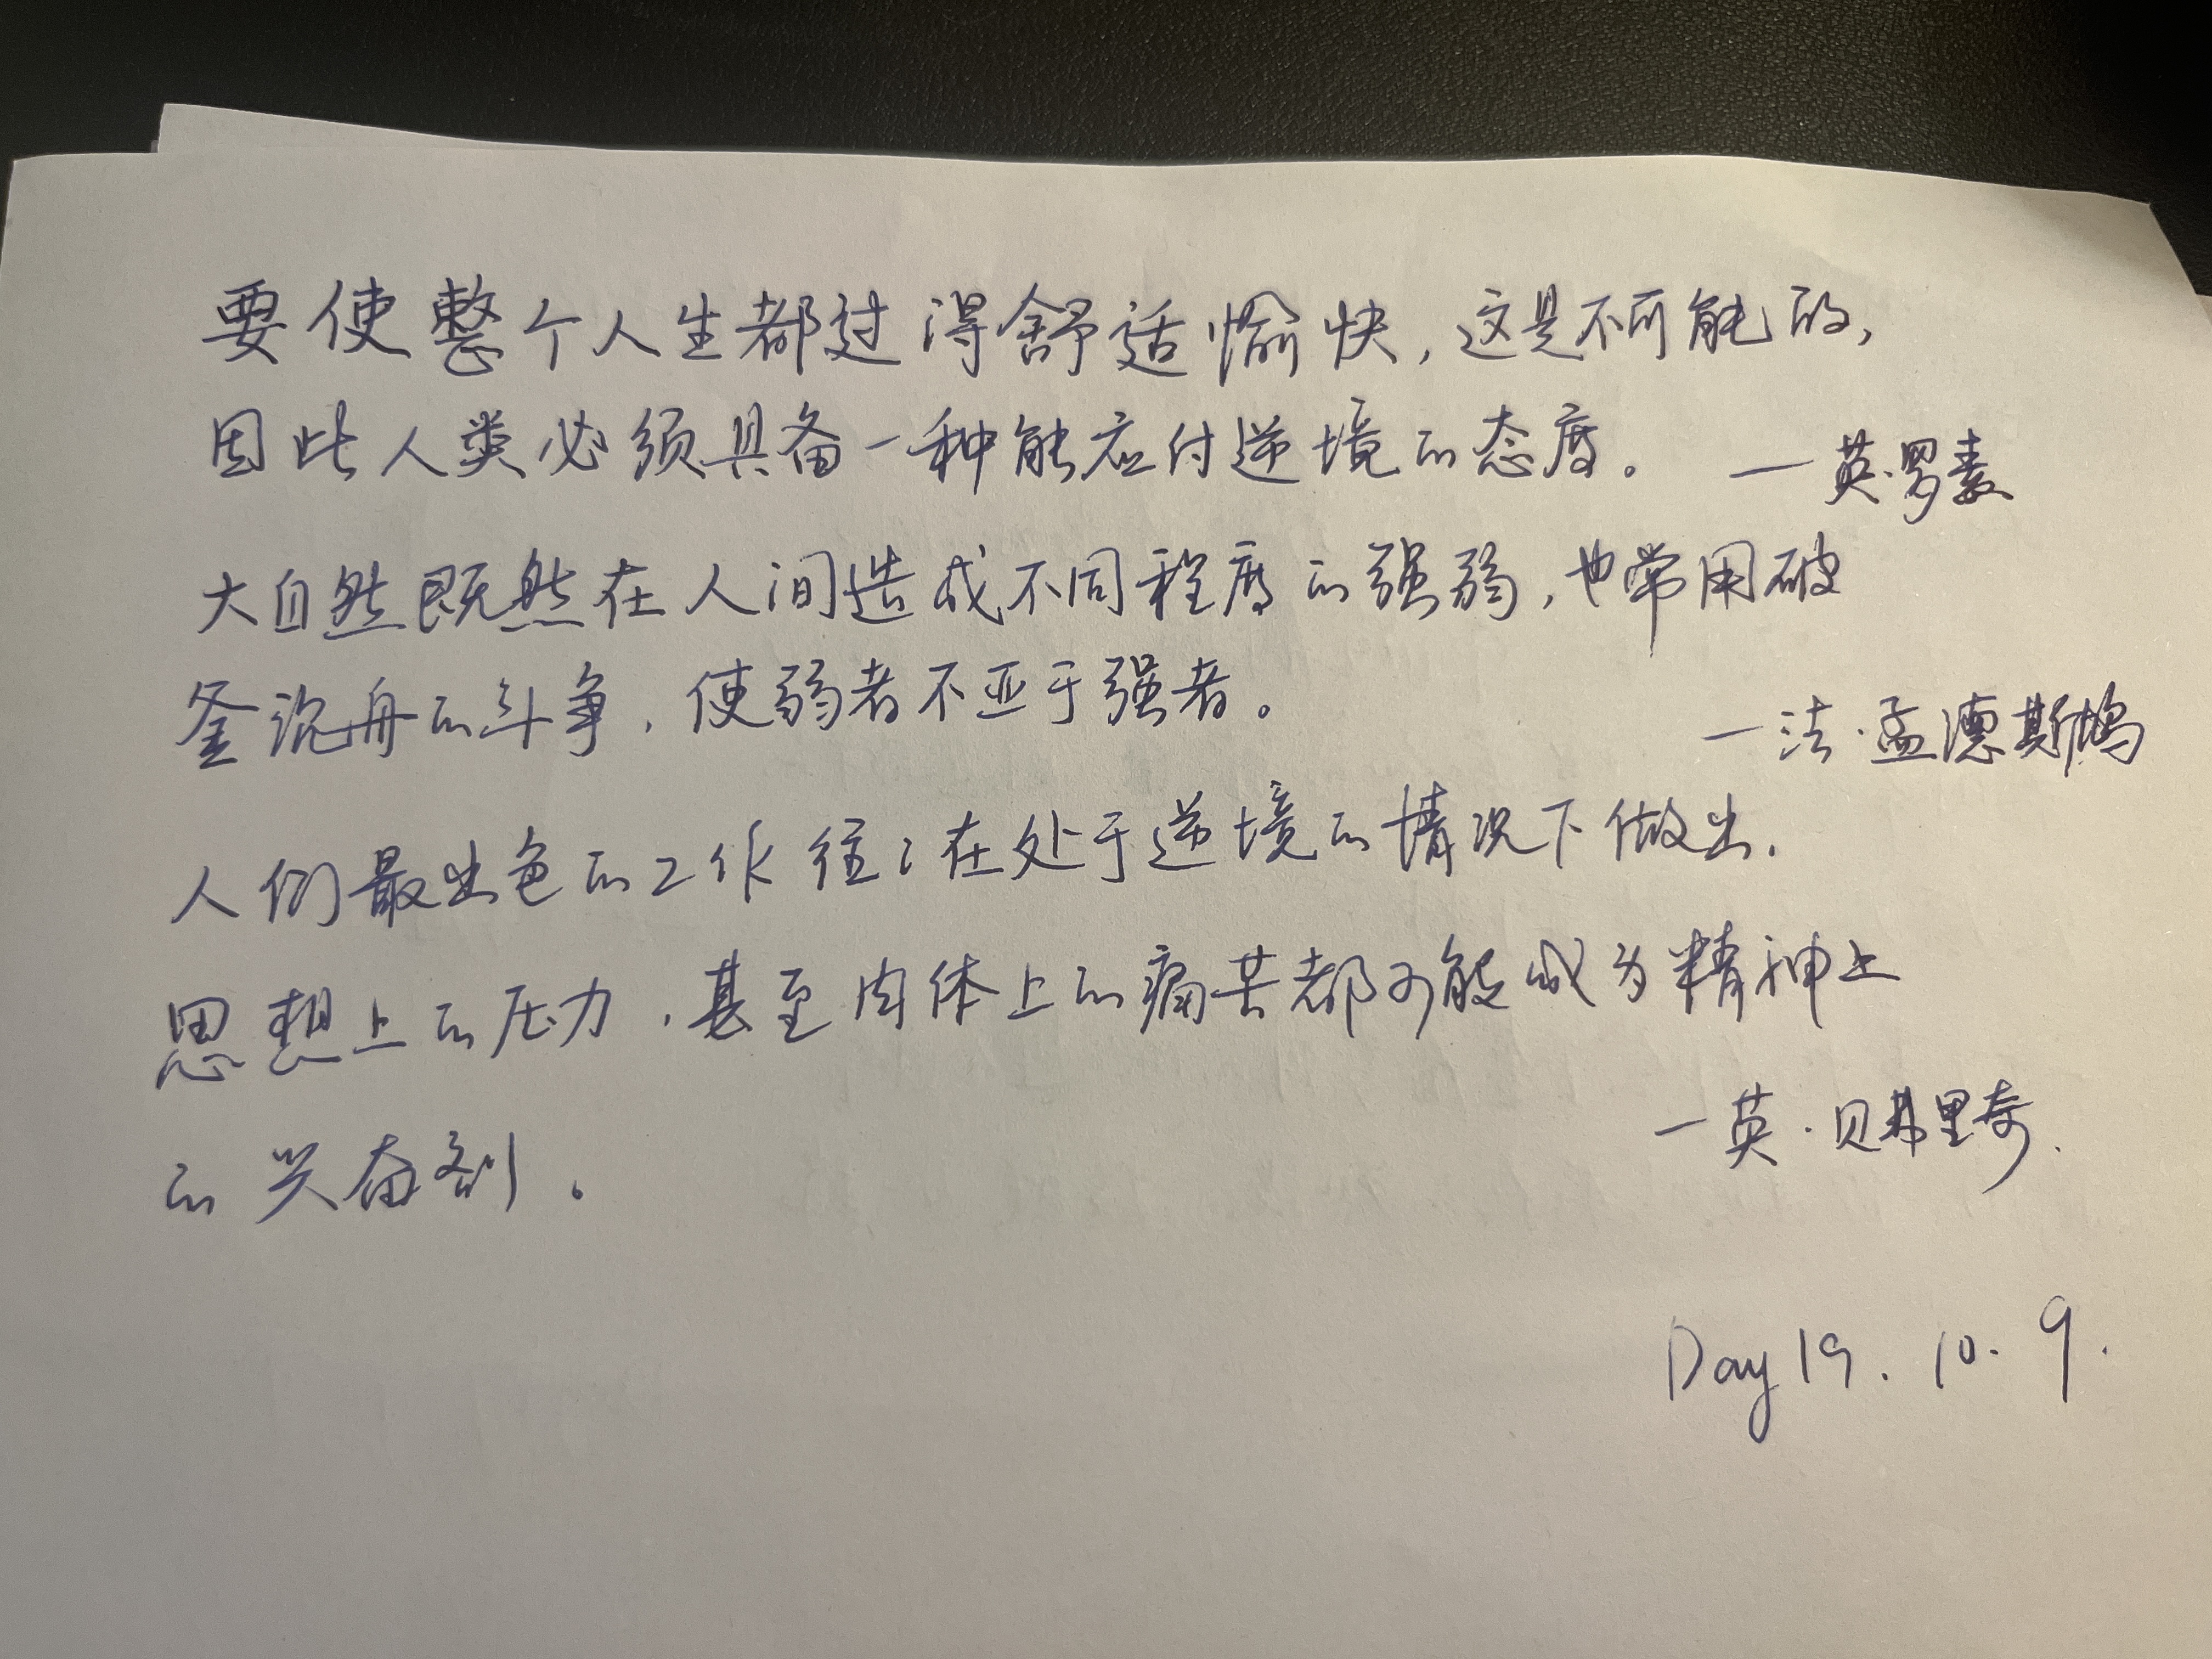 要使整个人生都过得舒适愉快，这是不可能的，
因此人类必须具备一种能应付逆境的态度。
—英·罗素
大自然既然在人间造成不同程度的强弱，也常用破
釜沉舟的斗争，使弱者不亚于强者。
—法·孟德斯鸠
人们最出色的工作往往在处于逆境的情况下做出.
思想上的压力，甚至肉体上的痛苦都可能成为精神上
的兴奋剂。
—英·贝弗里奇.
Day 19. 10. 9.